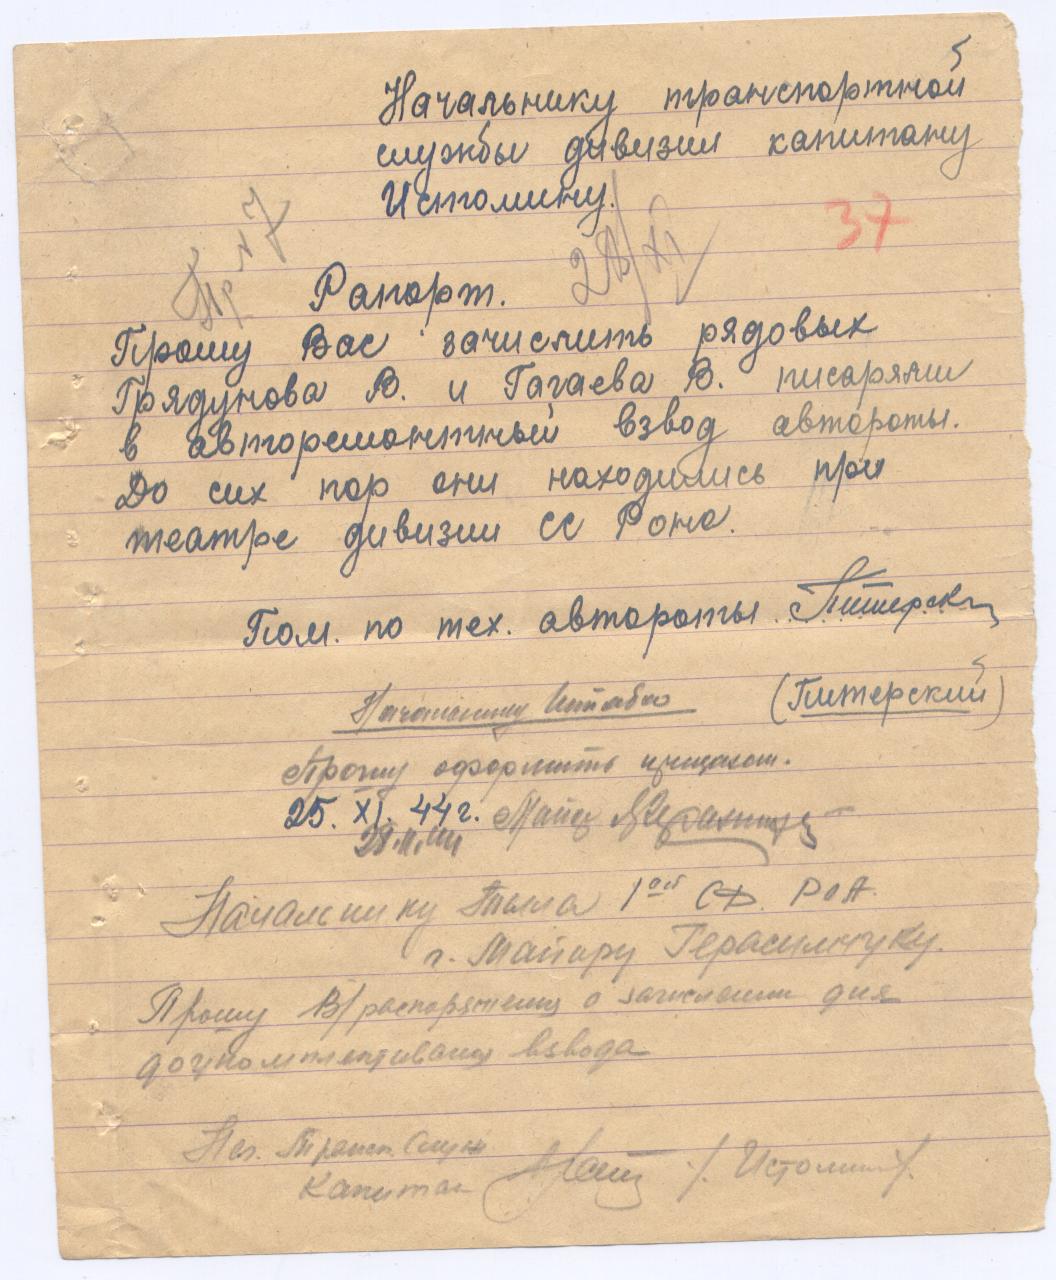 5
Начальнику транспортной
службы дивизии капитану
Истомину.
37
Пр №7
28/XI
Рапорт.
Прошу Вас зачислить рядовых
Грядунова В. и Гагаева В. писарями
в авторемонтный взвод автороты.
До сих пор они находились при
театре дивизии СС Рона.
Пом. по тех. автороты Питерск
(Питерский)
Начальнику Штаба
Прошу оформить приказом.
25. XI. 44г. Майор
28.11.44
Начальнику Тыла 1ой СД. РОА.
г. Майору Герасимчуку.
Прошу В/распоряжения о зачислении для
доукомплектования взвода
Нач. Трансп. Служ
Капитан /Истомин/.